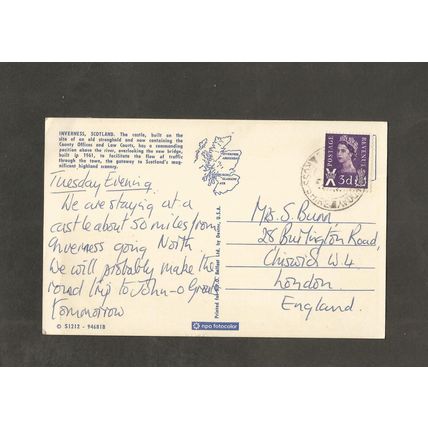 INVERNESS, SCOTLAND. The castle, built on the
site of an old stronghold and now containing the
County Offices and Law Courts, has a commanding
position above the river, overlooking the new bridge,
built in 1961, to facilitate the flow of traffic
through the town, the gateway to Scotland's mag-
nificent highland scenery.
Tuesday Evening.
We are staying at a
castle about 50 miles from
Inverness going North.
We will probably make the
round trip to John-o Groats
tommorrow
© S1212 - 94681B
Printed for by Dexter, U.S.A.
npo fotocolor
POSTAGE
REVENUE
3d
Mrs. S. Bunn
28 Burlington Road,
Chiswick W.4
London.
England.